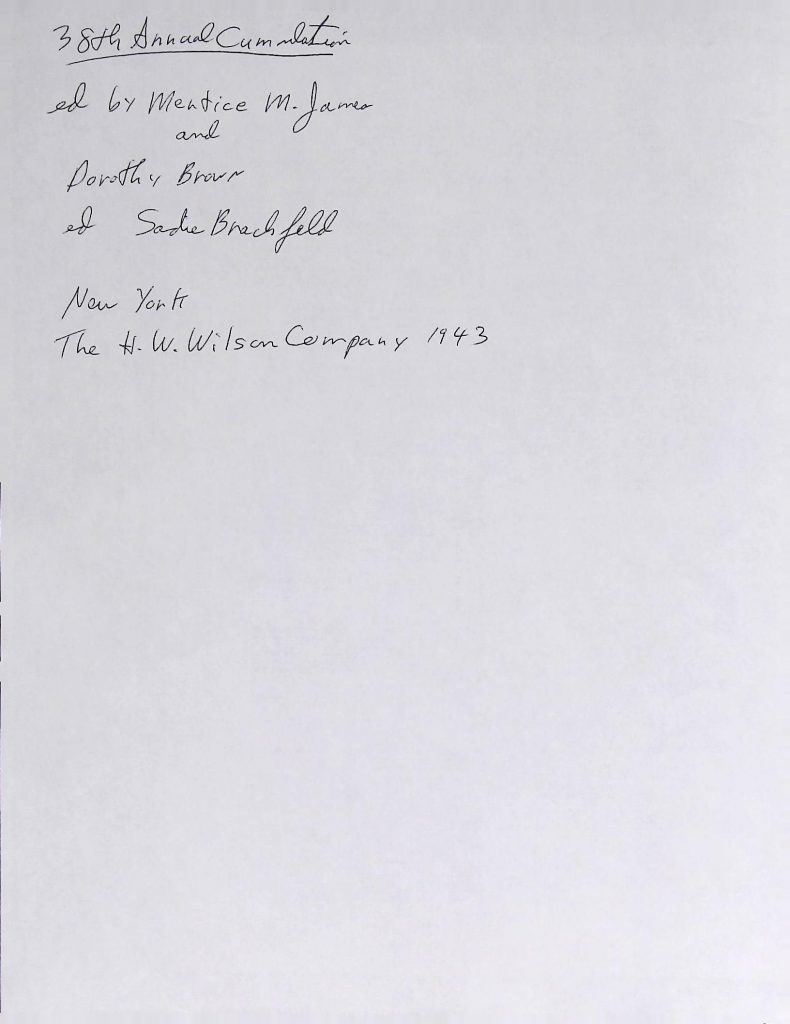 38th Annual Cummulation
ed by Mertice M. James
and
Dorothy Brown
ed Sadie Brachfeld
New York
The H. W. Wilson Company 1943